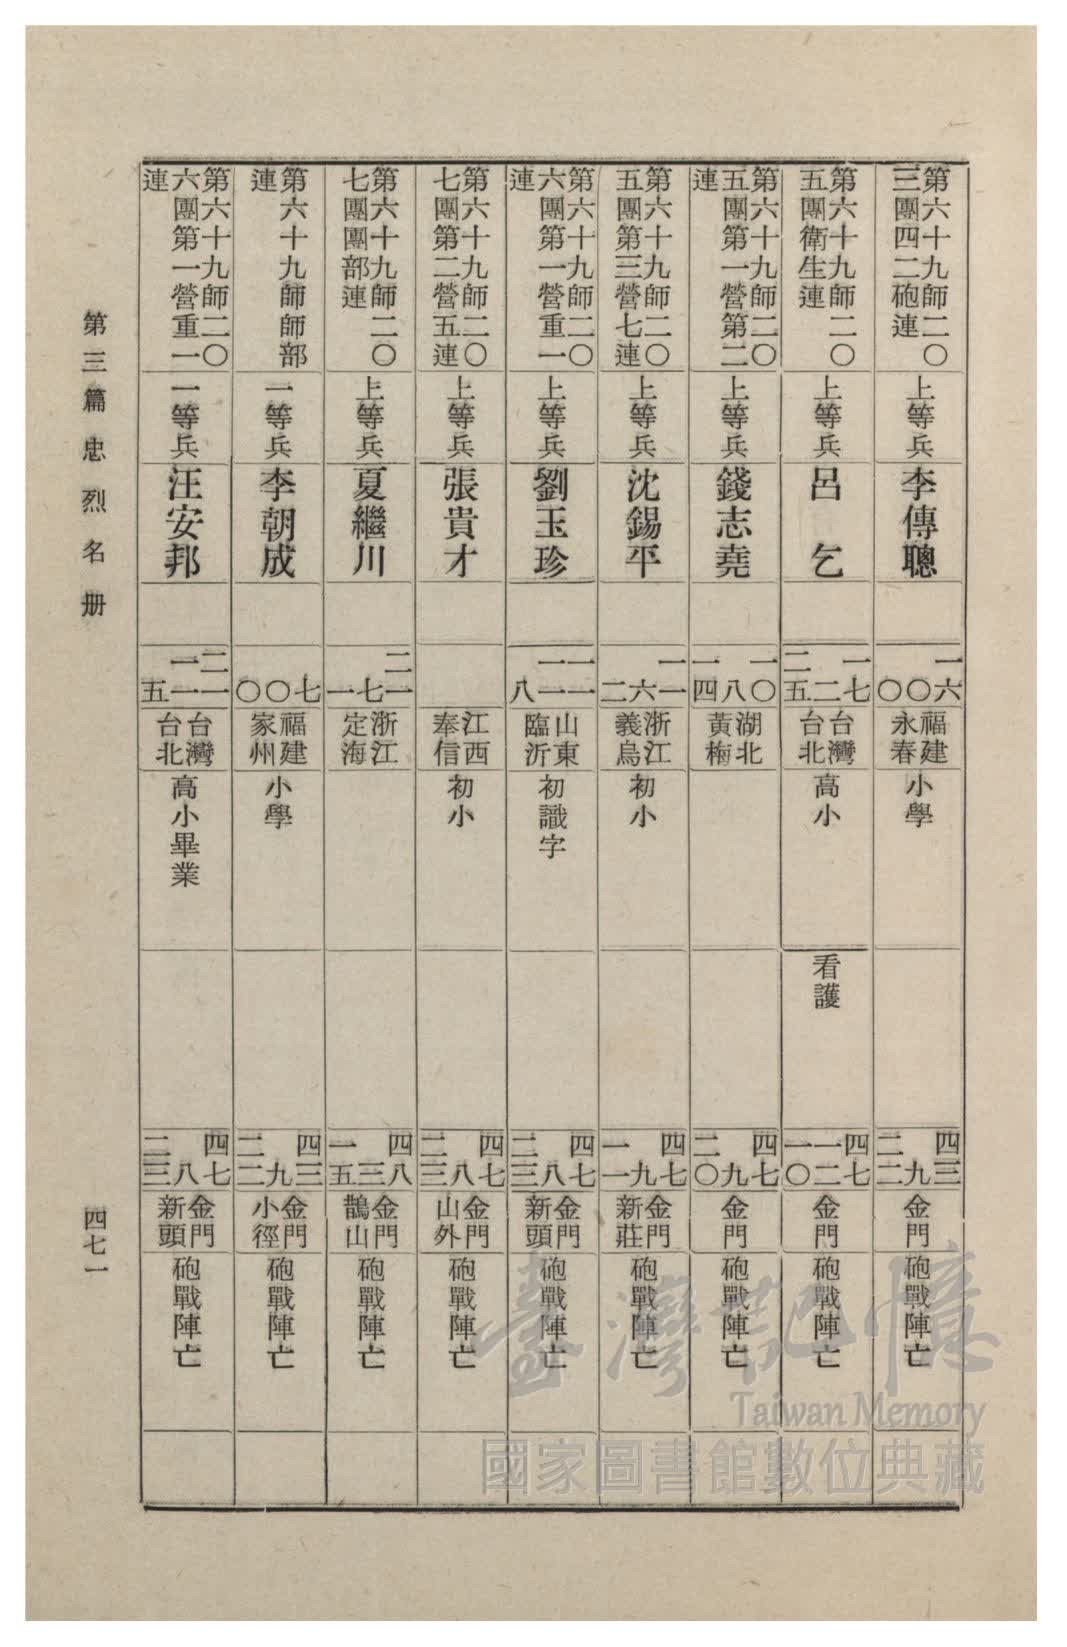 第六十九師二〇
三團四二砲連
上等兵
李傳聰
一六
〇
〇
福建
永春
小學
四三
九
二二
金門
砲戰陣亡
第六十九師二〇
五團衛生連
上等兵
呂乞
一七
二
二五
台灣
台北
高小
看護
四七
一二
一〇
金門
砲戰陣亡
第六十九師二〇
五團第一營第二
連
上等兵
錢志堯
一〇
八
一四
湖北
黃梅
四七
九
二〇
金門
砲戰陣亡
第六十九師二〇
五團第三營七連
上等兵
沈錫平
一一
六
二
浙江
義烏
初小
四七
九
一一
金門
新莊
砲戰陣亡
第六十九師二〇
六團第一營重一
連
上等兵
劉玉珍
一一
一一
八
山東
臨沂
初識字
四七
八
二三
金門
新頭
砲戰陣亡
第六十九師二〇
七團第二營五連
上等兵
張貴才
江西
奉信
初小
四七
八
二三
金門
山外
砲戰陣亡
第六十九師二〇
七團團部連
上等兵
夏繼川
二一
七
一
浙江
定海
四八
三
一五
金門
鵲山
砲戰陣亡
第六十九師師部
連
一等兵
李朝成
七
〇
〇
福建
家州
小學
四三
九
二二
金門
小徑
砲戰陣亡
第六十九師二〇
六團第一營重一
連
一等兵
汪安邦
二一
一一
五
台灣
台北
高小畢業
四七
八
二三
金門
新頭
砲戰陣亡
第三篇忠烈名册
四七一
臺灣記憶
Taiwan Memory
國家圖書館數位典藏